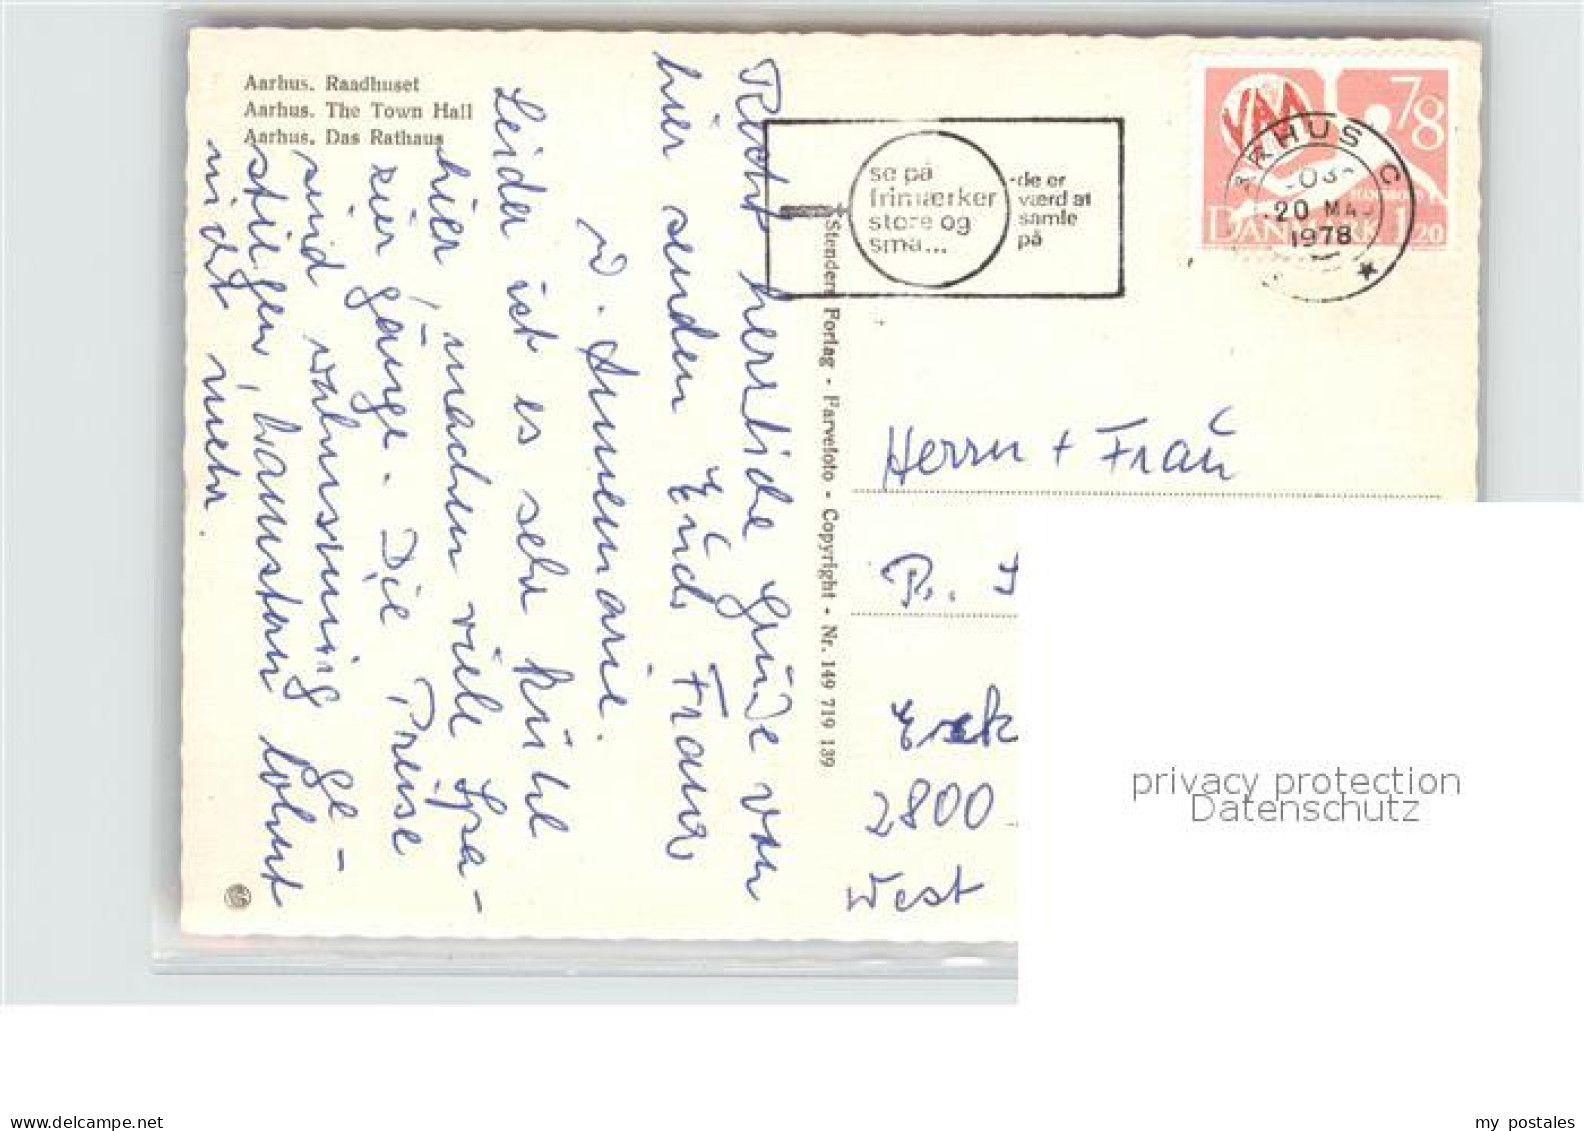 Aarhus. Raadhuset
Aarhus. The Town Hall
Aarhus. Das Rathaus
Recht herzliche Grüße von
hier senden Euch Franz
u. Annemarie.
Leider ist es sehr kühl
hier, machen viele Spa-
ziergänge. Die Preise
sind wahnsinnig ge-
stiegen, hamstern lohnt
nicht mehr.
Stenders Forlag - Farvefoto - Copyright - Nr. 149 719 139
se på
frimærker
store og
små...
-de er
værd at
samle
på
78
DANMARK 120
AARHUS C
20 MAJ
1978
Herrn + Frau
2800
West
privacy protection
Datenschutz
www.delcampe.net
my postales